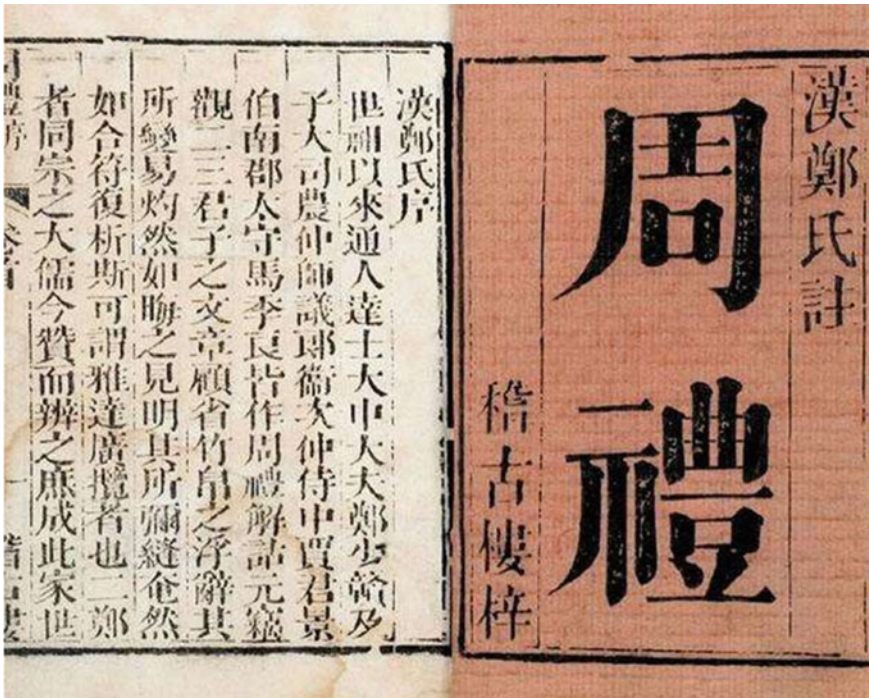 漢鄭氏註
周禮
稽古樓梓
漢鄭氏序
世祖以來通人達士大中大夫鄭少贛及
子大司農仲師議郎衞次仲侍中賈君景
伯南郡太守馬李良皆作周禮解詁元竊
觀二三君子之文章顧省竹帛之浮辭其
所變易灼然如晦之見明其所彌縫奄然
如合符復析斯可謂雅達廣攬者也二鄭
者同宗之大儒今贊而辨之庶成此家世
周禮序 卷首 一 稽古樓